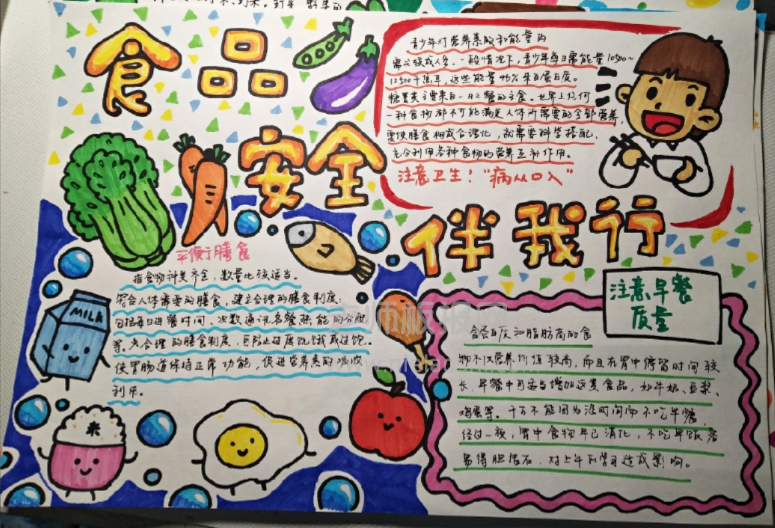 食品
安全
伴我行
青少年对营养素的和能量的
需求较成人多.一般情况下,青少年每日需能量10500~
12500千焦耳.这些能量45%来自蛋白质。
糖类主要来自一日三餐的主食。世界上任何
一种食物都不可能满足人体所需要的全部营养,
要使膳食构成合理化,就需要科学搭配,
充分利用各种食物的营养互补作用。
注意卫生!"病从口入"
平衡膳食
指食物种类齐全,数量比较适当。
符合人体需要的膳食、建立合理的膳食制度、
包括每日进餐时间、次数通过各餐热能的分配
等。
合理的膳食制度、可防止过度饥饿或过饱。
使胃肠道保持正常功能,促进营养素的吸收
利用。
MILK
米
注意早餐
质量
含蛋白质和脂肪高的食
物不仅营养价值较高,而且在胃中停留时间较
长,早餐中可适当增加这类食品,如牛奶、豆浆、
鸡蛋等。千万不能因为没时间而不吃早餐,
经过一夜,胃中食物早已消化,不吃早餐容
易得胆结石,对上午的学习造成影响。